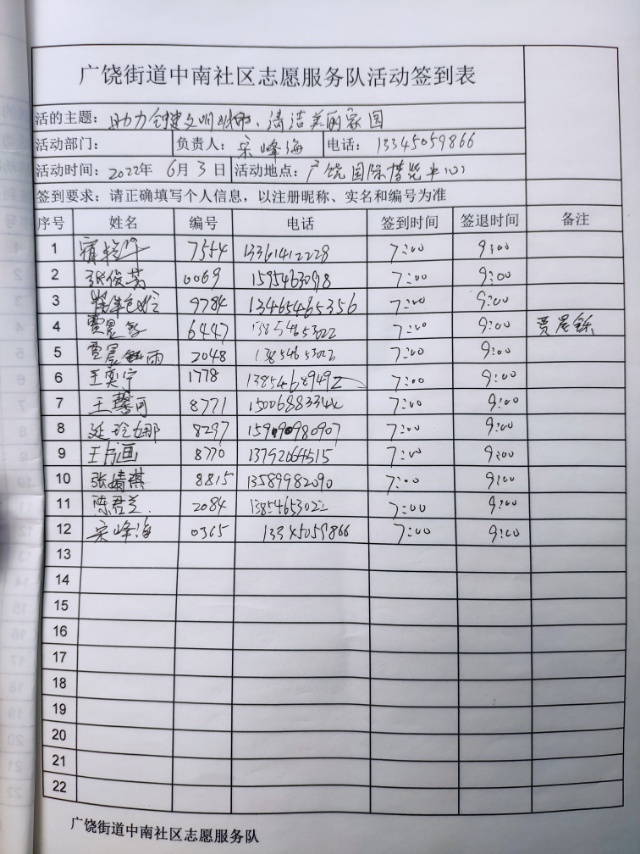 广饶街道中南社区志愿服务队活动签到表
活的主题：助力创建文明城市、清洁美丽家园
活动部门： 负责人：宋峰海 电话：13345059866
活动时间：2022年6月3日 活动地点：广饶国际博览中心
签到要求：请正确填写个人信息，以注册昵称、实名和编号为准
序号 姓名 编号 电话 签到时间 签退时间 备注
1 7554 13361412228 7:00 9:00
2 张俊芳 0069 1595463098 7:00 9:00
3 9784 13465465356 7:00 9:00
4 6447 13854653022 7:00 9:00 贾晨铄
5 贾晨雨 2048 13854653022 7:00 9:00
6 王奕宁 1778 13854689492 7:00 9:00
7 王馨可 8771 7:00 9:00
8 延玲娜 8297 15909080907 7:00 9:00
9 8770 13792064515 7:00 9:00
10 张婧琪 8815 13589982090 7:00 9:00
11 陈君兰 2084 13854653022 7:00 9:00
12 宋峰海 0365 13345059866 7:00 9:00
13
14
15
16
17
18
19
20
21
22
广饶街道中南社区志愿服务队